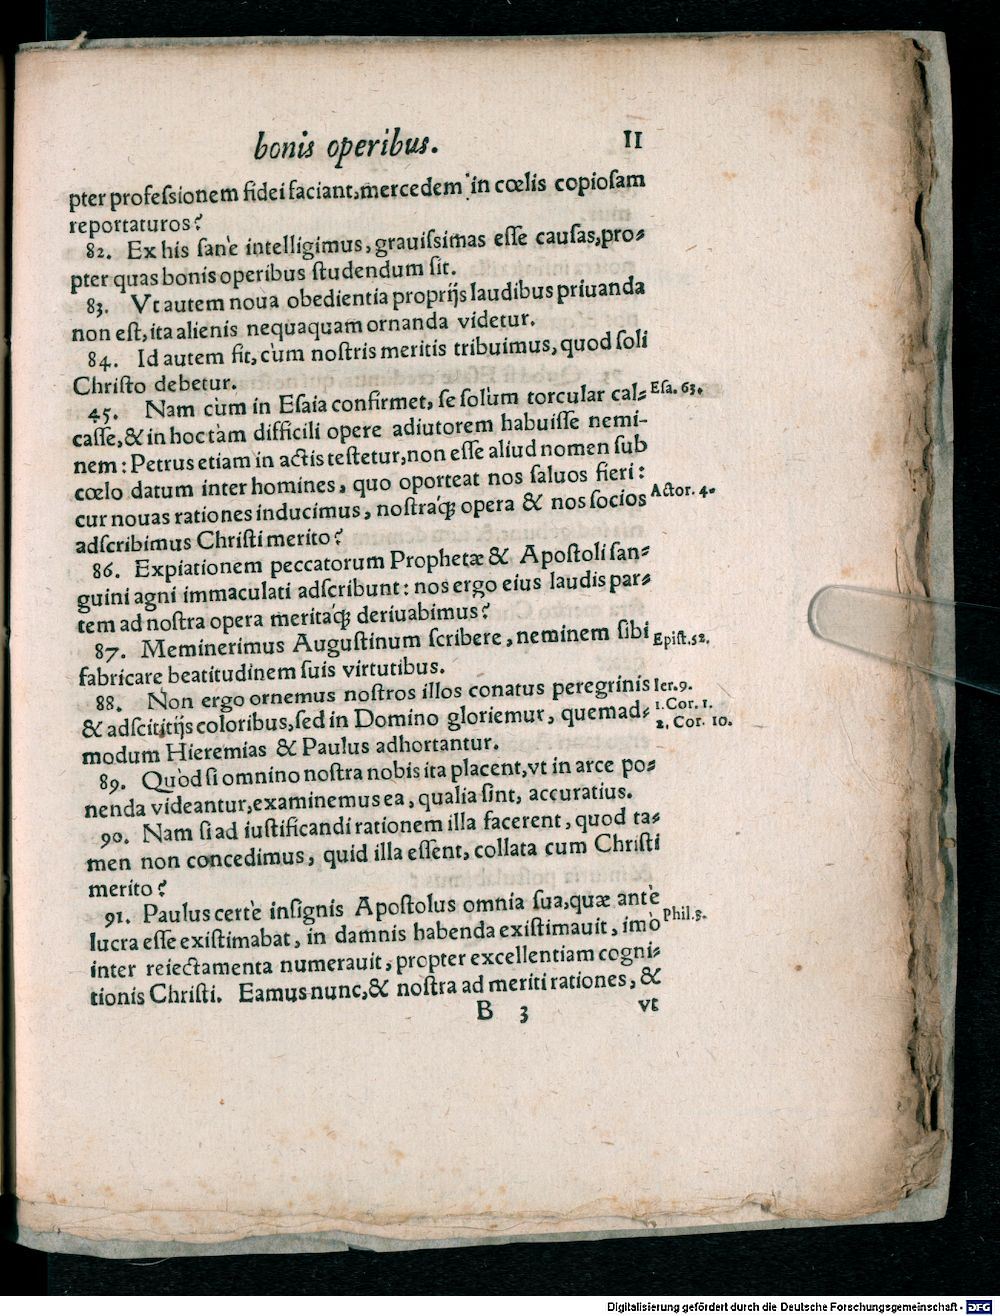 bonis operibus. 11
pter professionem fidei faciant, mercedem in cœlis copiosam
reportaturos?
82. Ex his sanè intelligimus, grauissimas esse causas, pro-
pter quas bonis operibus studendum sit.
83. Vt autem noua obedientia proprijs laudibus priuanda
non est, ita alienis nequaquam ornanda videtur.
84. Id autem fit, cùm nostris meritis tribuimus, quod soli
Christo debetur.
45. Nam cùm in Esaia confirmet, se solùm torcular cal- Esa. 63.
casse, & in hoc tàm difficili opere adiutorem habuisse nemi-
nem: Petrus etiam in actis testetur, non esse aliud nomen sub
cœlo datum inter homines, quo oporteat nos saluos fieri:
cur nouas rationes inducimus, nostraq́; opera & nos socios Actor. 4.
adscribimus Christi merito?
86. Expiationem peccatorum Prophetæ & Apostoli san-
guini agni immaculati adscribunt: nos ergo eius laudis par-
tem ad nostra opera meritaq́; deriuabimus?
87. Meminerimus Augustinum scribere, neminem sibi Epist. 52.
fabricare beatitudinem suis virtutibus.
88. Non ergo ornemus nostros illos conatus peregrinis Ier. 9.
& adscititijs coloribus, sed in Domino gloriemur, quemad- 1. Cor. 1.
2. Cor. 10.
modum Hieremias & Paulus adhortantur.
89. Quòd si omnino nostra nobis ita placent, vt in arce po-
nenda videantur, examinemus ea, qualia sint, accuratius.
90. Nam si ad iustificandi rationem illa facerent, quod ta-
men non concedimus, quid illa essent, collata cum Christi
merito?
91. Paulus certè insignis Apostolus omnia sua, quæ antè
lucra esse existimabat, in damnis habenda existimauit, imò Phil. 3.
inter reiectamenta numerauit, propter excellentiam cogni-
tionis Christi. Eamus nunc, & nostra ad meriti rationes, &
B 3 vt
Digitalisierung gefördert durch die Deutsche Forschungsgemeinschaft - DFG